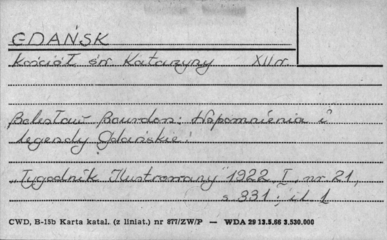 GDAŃSK
Kościół św. Katarzyny XII w.
Bolesław Bourdon: Wspomnienia i
legendy Gdańskie.
Tygodnik Ilustrowany 1922, I, nr. 21,
s 331; il. 1
CWD, B-15b Karta katal. (z liniat.) nr 877/ZW/P — WDA 29 13.5.66 3.530.000